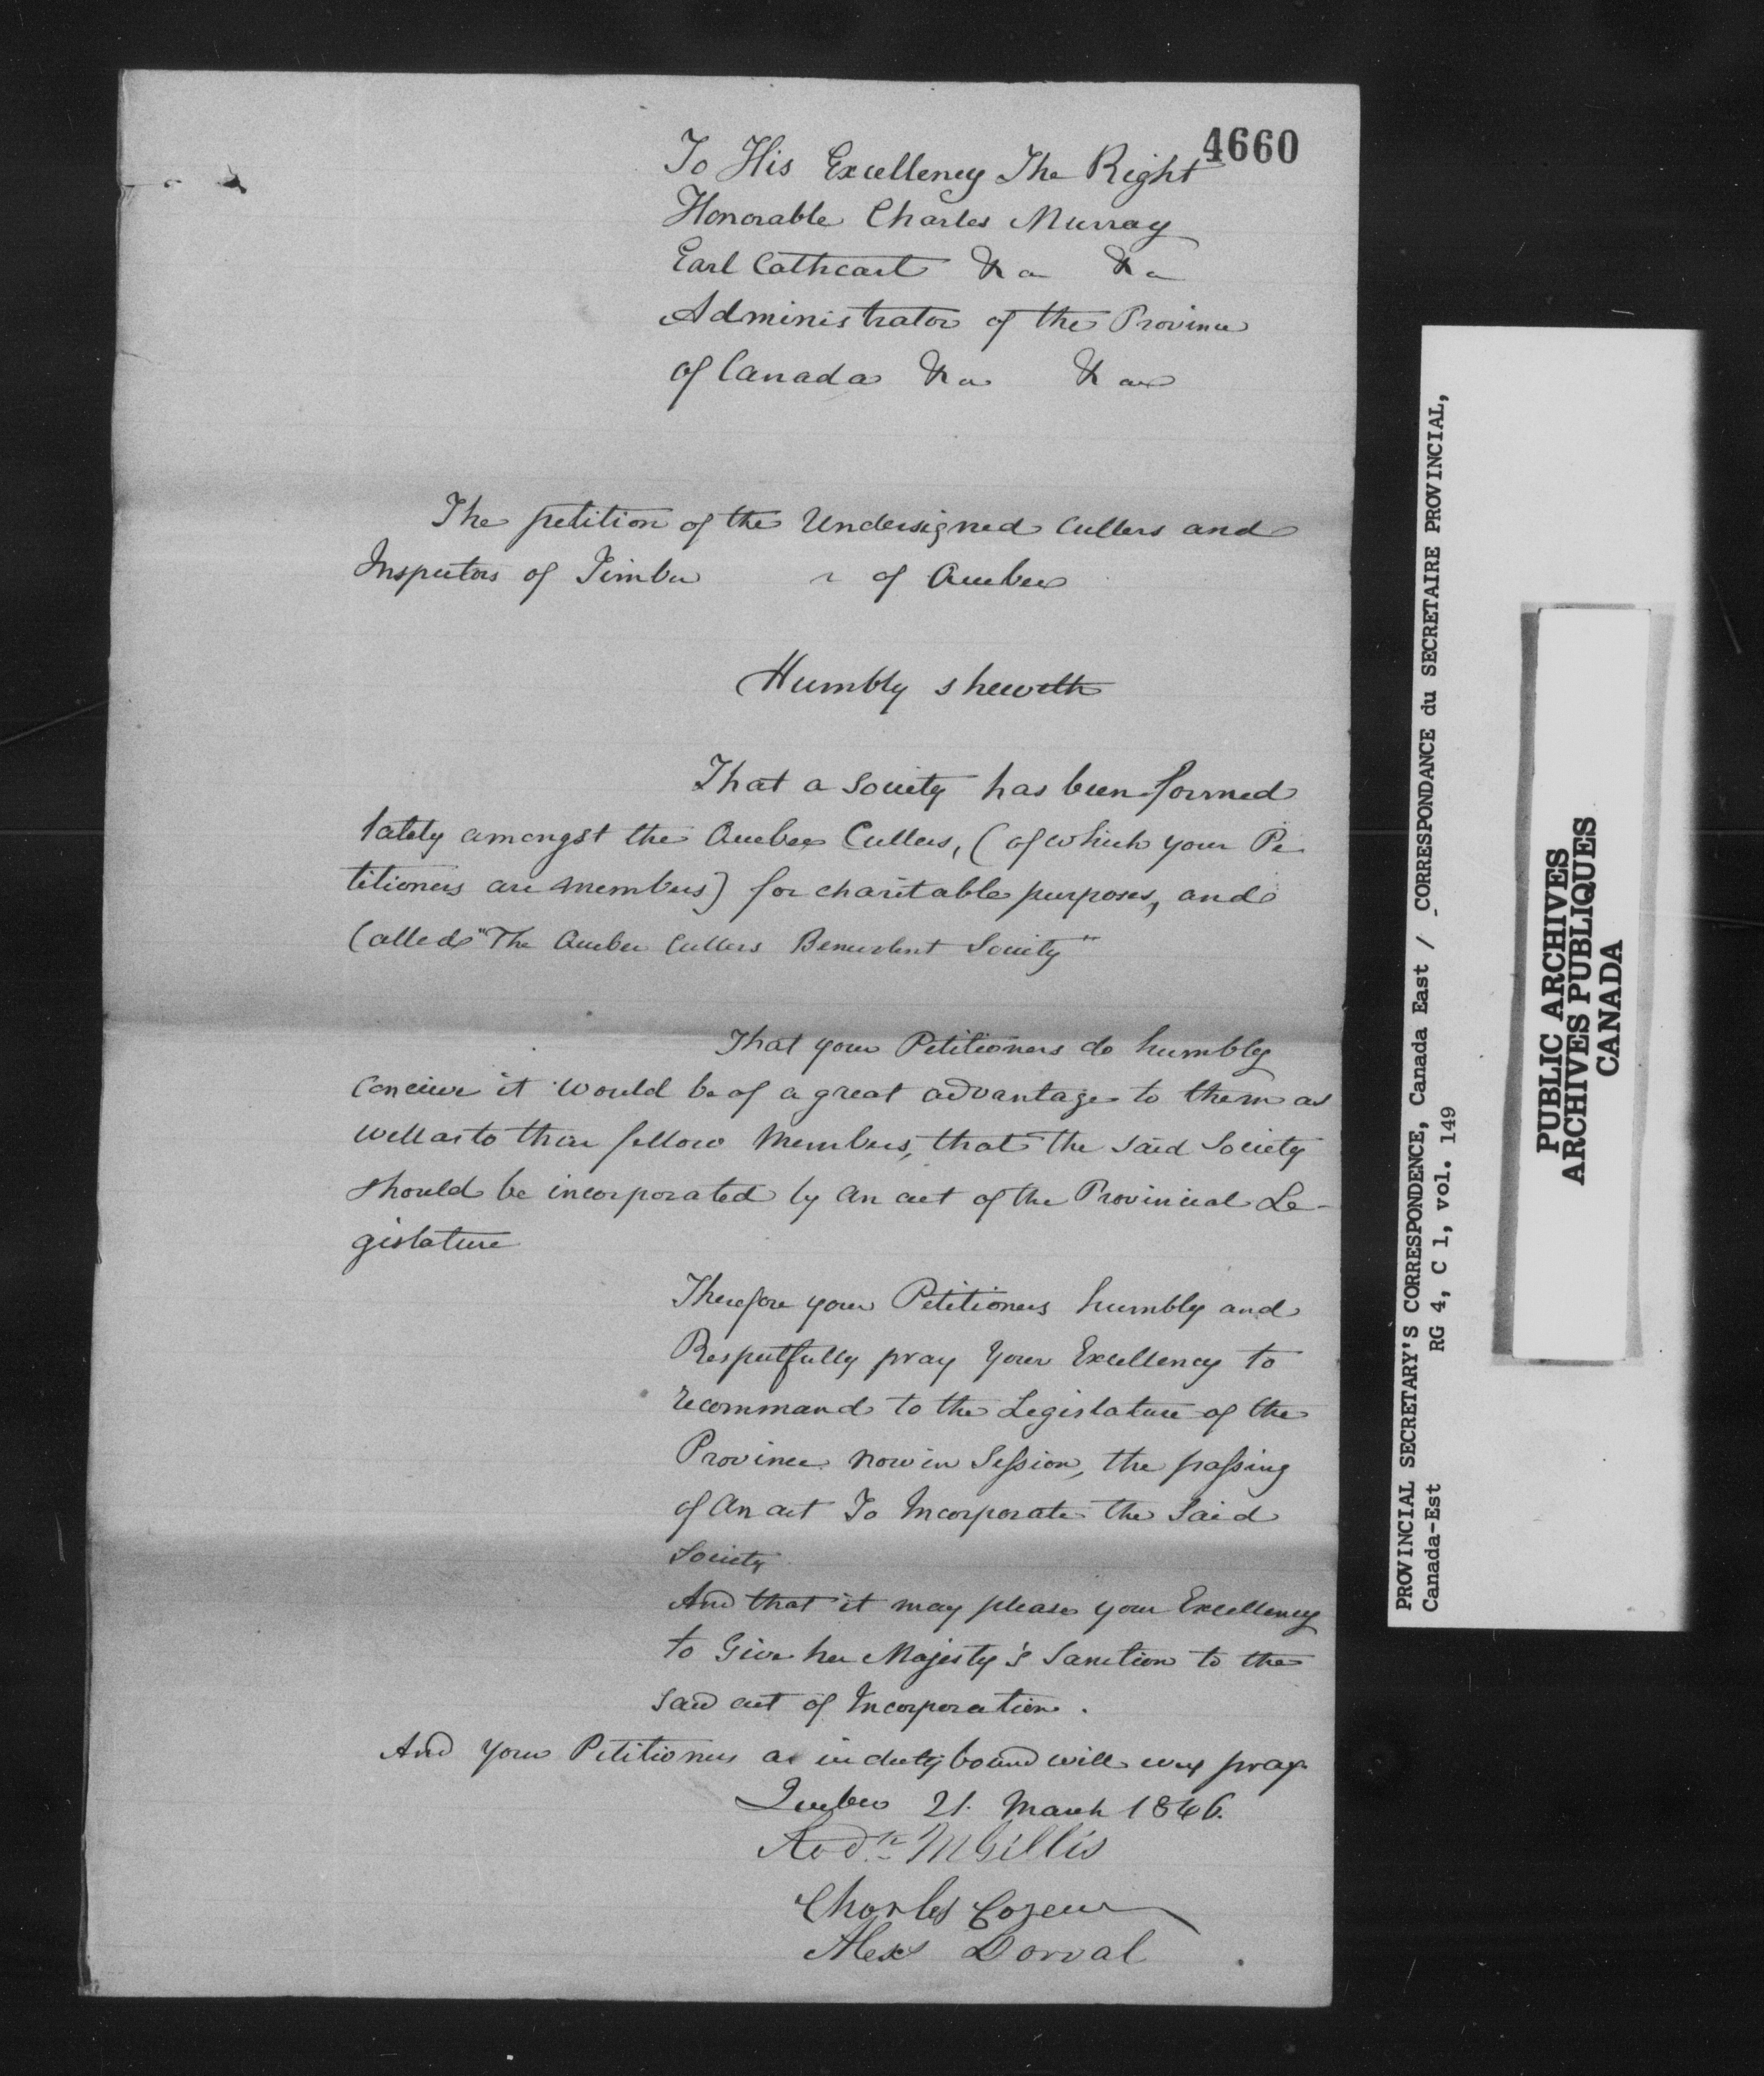 4660
To His Excellency The Right
Honorable Charles Murray
Earl Cathcart &a &a
Administrator of the Province
of Canada &a &a
The petition of the Undersigned Cullers and
Inspectors of Timber of Quebec
Humbly sheweth
That a Society has been formed
lately amongst the Quebec Cullers, (of which your Pe
titioners are members) for charitable purposes, and
Called "The Quebec Cullers Benevolent Society"
That your Petitioners do humbly
Conceive it would be of a great advantage to them as
well as to their fellow Members, that the said Society
should be incorporated by an act of the Provincial Le-
gislature
Therefore your Petitioners humbly and
Respectfully pray your Excellency to
recommand to the Legislature of the
Province now in Session, the passing
of an act To Incorporate the Said
Society
And that it may please your Excellency
to Give her Majesty's Sanction to the
said act of Incorporation.
And your Petitioners as in duty bound will ever pray
Quebec 21. March 1846.
McGillis
Charles
Alexs Dorval
PROVINCIAL SECRETARY'S CORRESPONDENCE, Canada East / CORRESPONDANCE du SECRETAIRE PROVINCIAL,
Canada-Est RG 4, C 1, vol. 149
PUBLIC ARCHIVES
ARCHIVES PUBLIQUES
CANADA